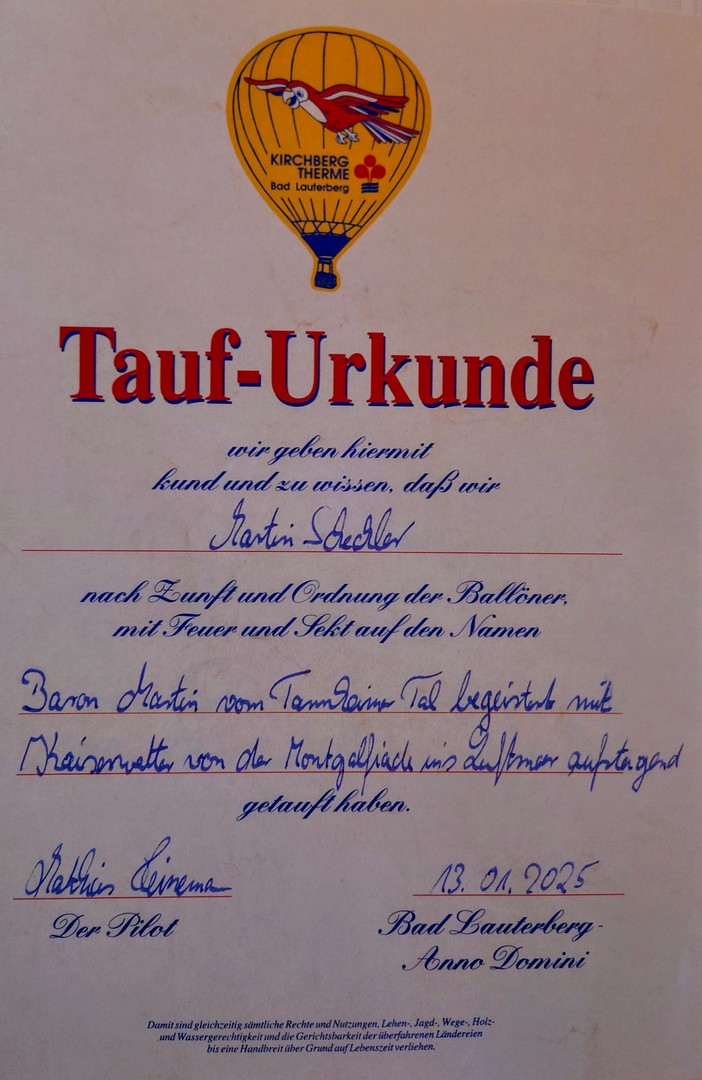 KIRCHBERG
THERME
Bad Lauterberg
Tauf-Urkunde
wir geben hiermit
kund und zu wissen, daß wir
Martin
nach Zunft und Ordnung der Ballöner,
mit Feuer und Sekt auf den Namen
Baron Martin vom Tannheimer Tal begeistert mit
Kaiserwetter von der Montgolfiade ins Luftmeer aufsteigend
getauft haben.
Mathias
13. 01. 2025
Der Pilot
Bad Lauterberg-
Anno Domini
Damit sind gleichzeitig sämtliche Rechte und Nutzungen, Lehen-, Jagd-, Wege-, Holz-
und Wassergerechtigkeit und die Gerichtsbarkeit der überfahrenen Ländereien
bis eine Handbreit über Grund auf Lebenszeit verliehen.